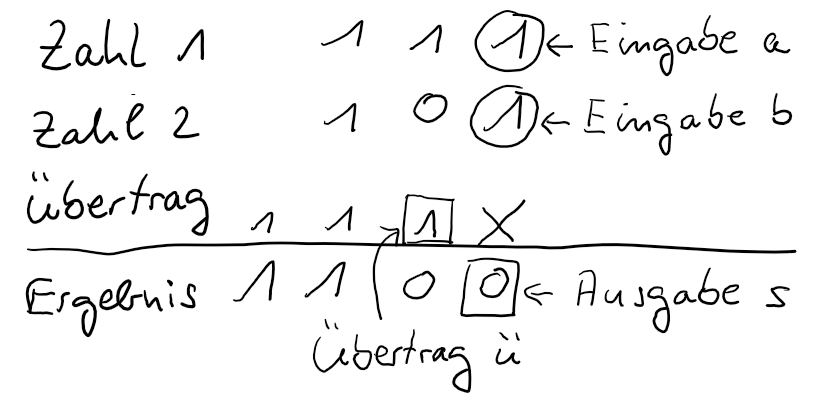 Zahl 1 1 1 1 ← Eingabe a
Zahl 2 1 0 1 ← Eingabe b
Übertrag 1 1 1 X
Ergebnis 1 1 0 0 ← Ausgabe s
Übertrag ü